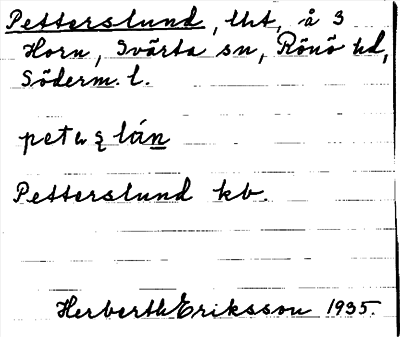 Petterslund, lht, å 3
Horn, Svärta sn, Rönö hd,
Söderm. l.
Petterslund kb.
Herberth Eriksson 1935.